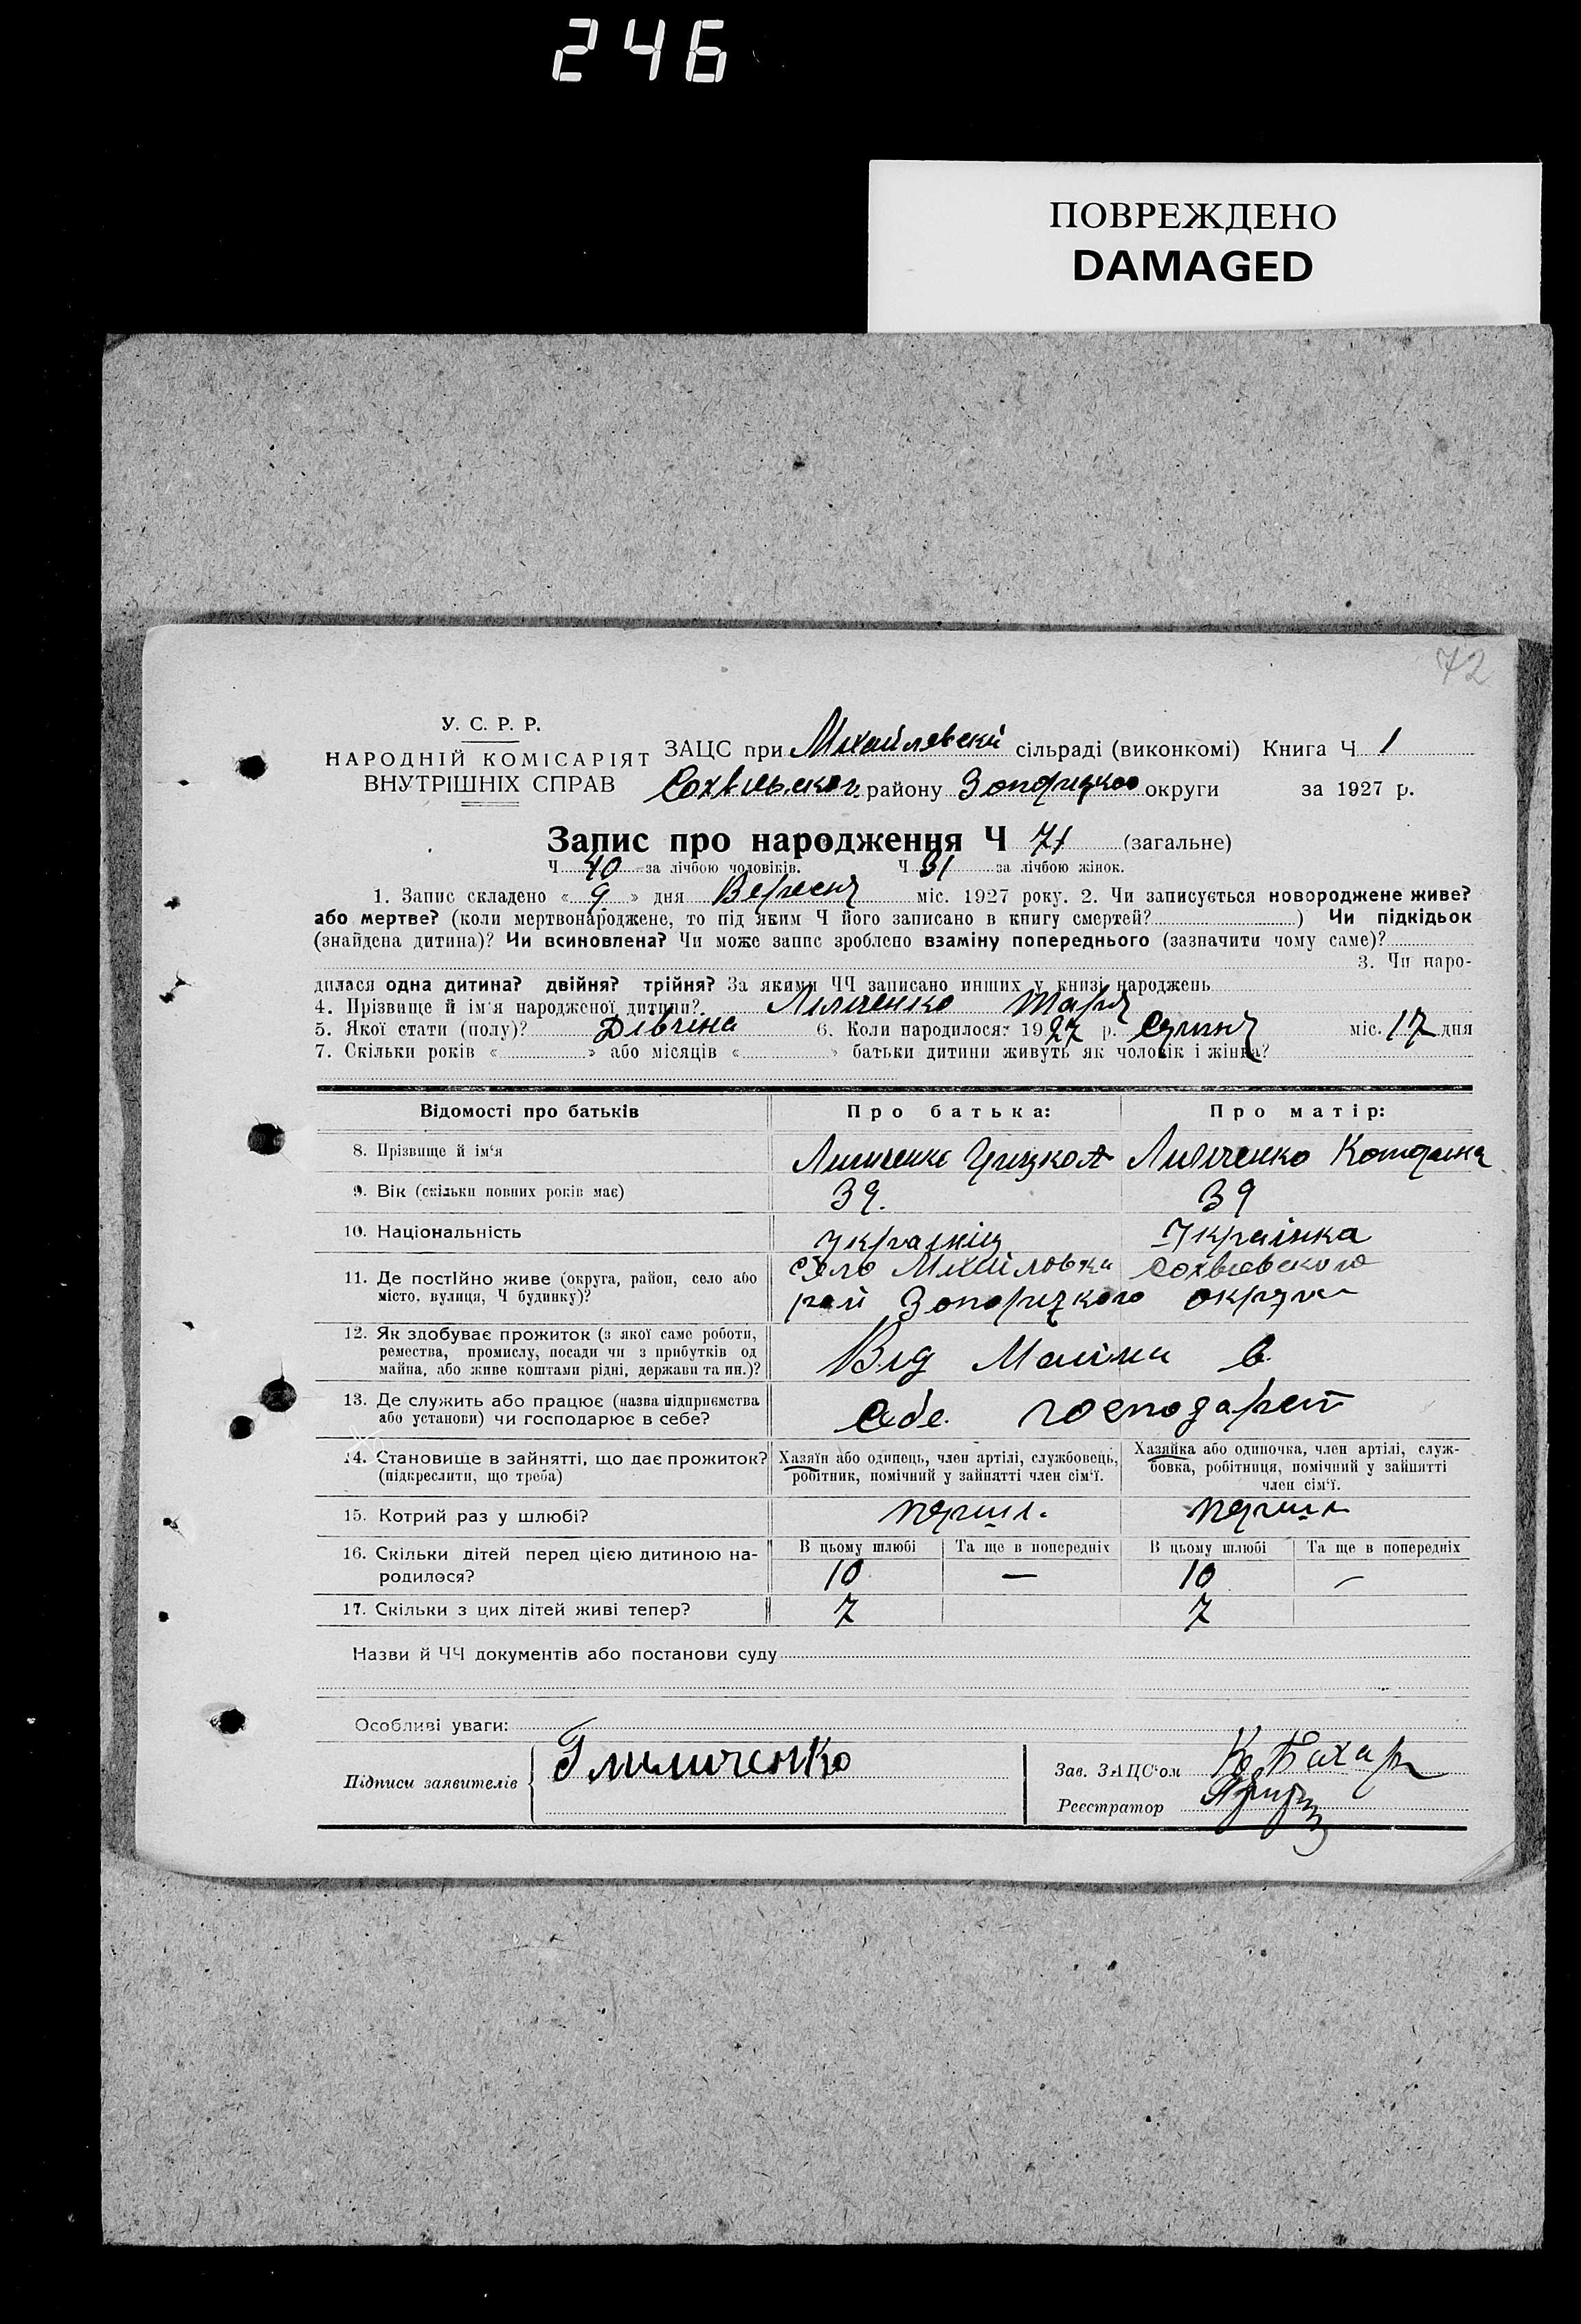 246
ПОВРЕЖДЕНО
DAMAGED
72
У. С. Р. Р.
НАРОДНІЙ КОМІСАРІЯТ
ВНУТРІШНІХ СПРАВ
ЗАЦС при Михайлевскій сільраді (виконкомі) Книга Ч 1
району округи за 1927 р.
Запис про народження Ч 71 (загальне)
Ч 40 за лічбою чоловіків. Ч 31 за лічбою жінок.
1. Запис складено « 9 » дня Вересня міс. 1927 року. 2. Чи записується новороджене живе?
або мертве? (коли мертвонароджене, то під яким Ч його записано в книгу смертей? ) Чи підкідьок
(знайдена дитина)? Чи всиновлена? Чи може запис зроблено взаміну попереднього (зазначити чому саме)?
3. Чи наро-
дилася одна дитина? двійня? трійня? За якими ЧЧ записано инших у книзі народжень
4. Прізвище й ім'я народженої дитини?
5. Якої стати (полу)? Дівчина 6. Коли народилося? 1927 р. міс. 17 дня
7. Скільки років « » або місяців « » батьки дитини живуть як чоловік і жінка?
Відомості про батьків
Про батька:
Про матір:
8. Прізвище й ім'я
9. Вік (скільки повних років має) 39. 39
10. Національність Українець Українка
11. Де постійно живе (округа, район, село або
місто, вулиця, Ч будинку)?
село Михайловка
рай Запорізкого округи
12. Як здобуває прожиток (з якої саме роботи,
ремества, промислу, посади чи з прибутків од
майна, або живе коштами рідні, держави та ин.)?
Від
13. Де служить або працює (назва підприємства
або установи) чи господарює в себе?
себе господарст
14. Становище в зайнятті, що дає прожиток?
(підкреслити, що треба)
Хазяїн або одинець, член артілі, службовець,
робітник, помічний у зайнятті член сім'ї.
Хазяйка або одиночка, член артілі, служ-
бовка, робітниця, помічний у зайнятті
член сім'ї.
15. Котрий раз у шлюбі?
16. Скільки дітей перед цією дитиною на-
родилося?
В цьому шлюбі Та ще в попередніх В цьому шлюбі Та ще в попередніх
10 — 10 —
17. Скільки з цих дітей живі тепер? 7 7
Назви й ЧЧ документів або постанови суду
Особливі уваги:
Підписи заявителів
Зав. ЗАЦС'ом
Реєстратор